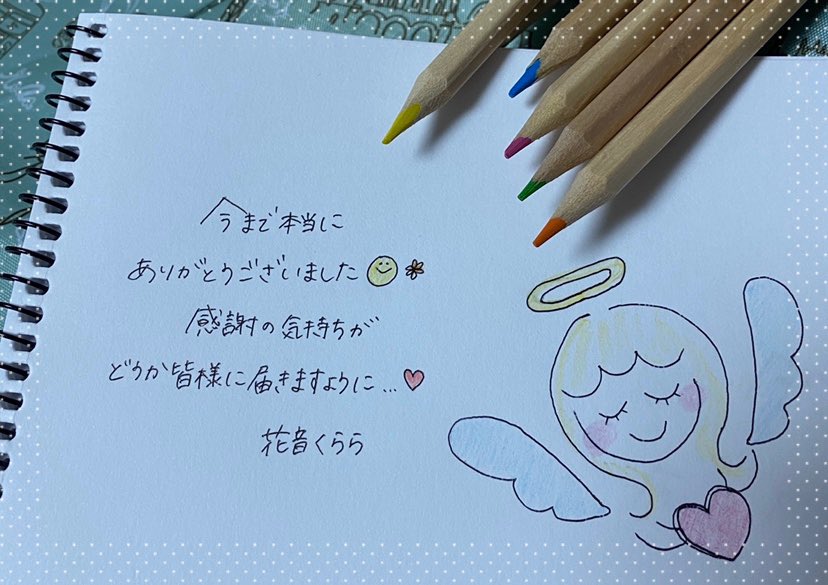 今まで本当に
ありがとうございました
感謝の気持ちが
どうか皆様に届きますように...
花音くらら